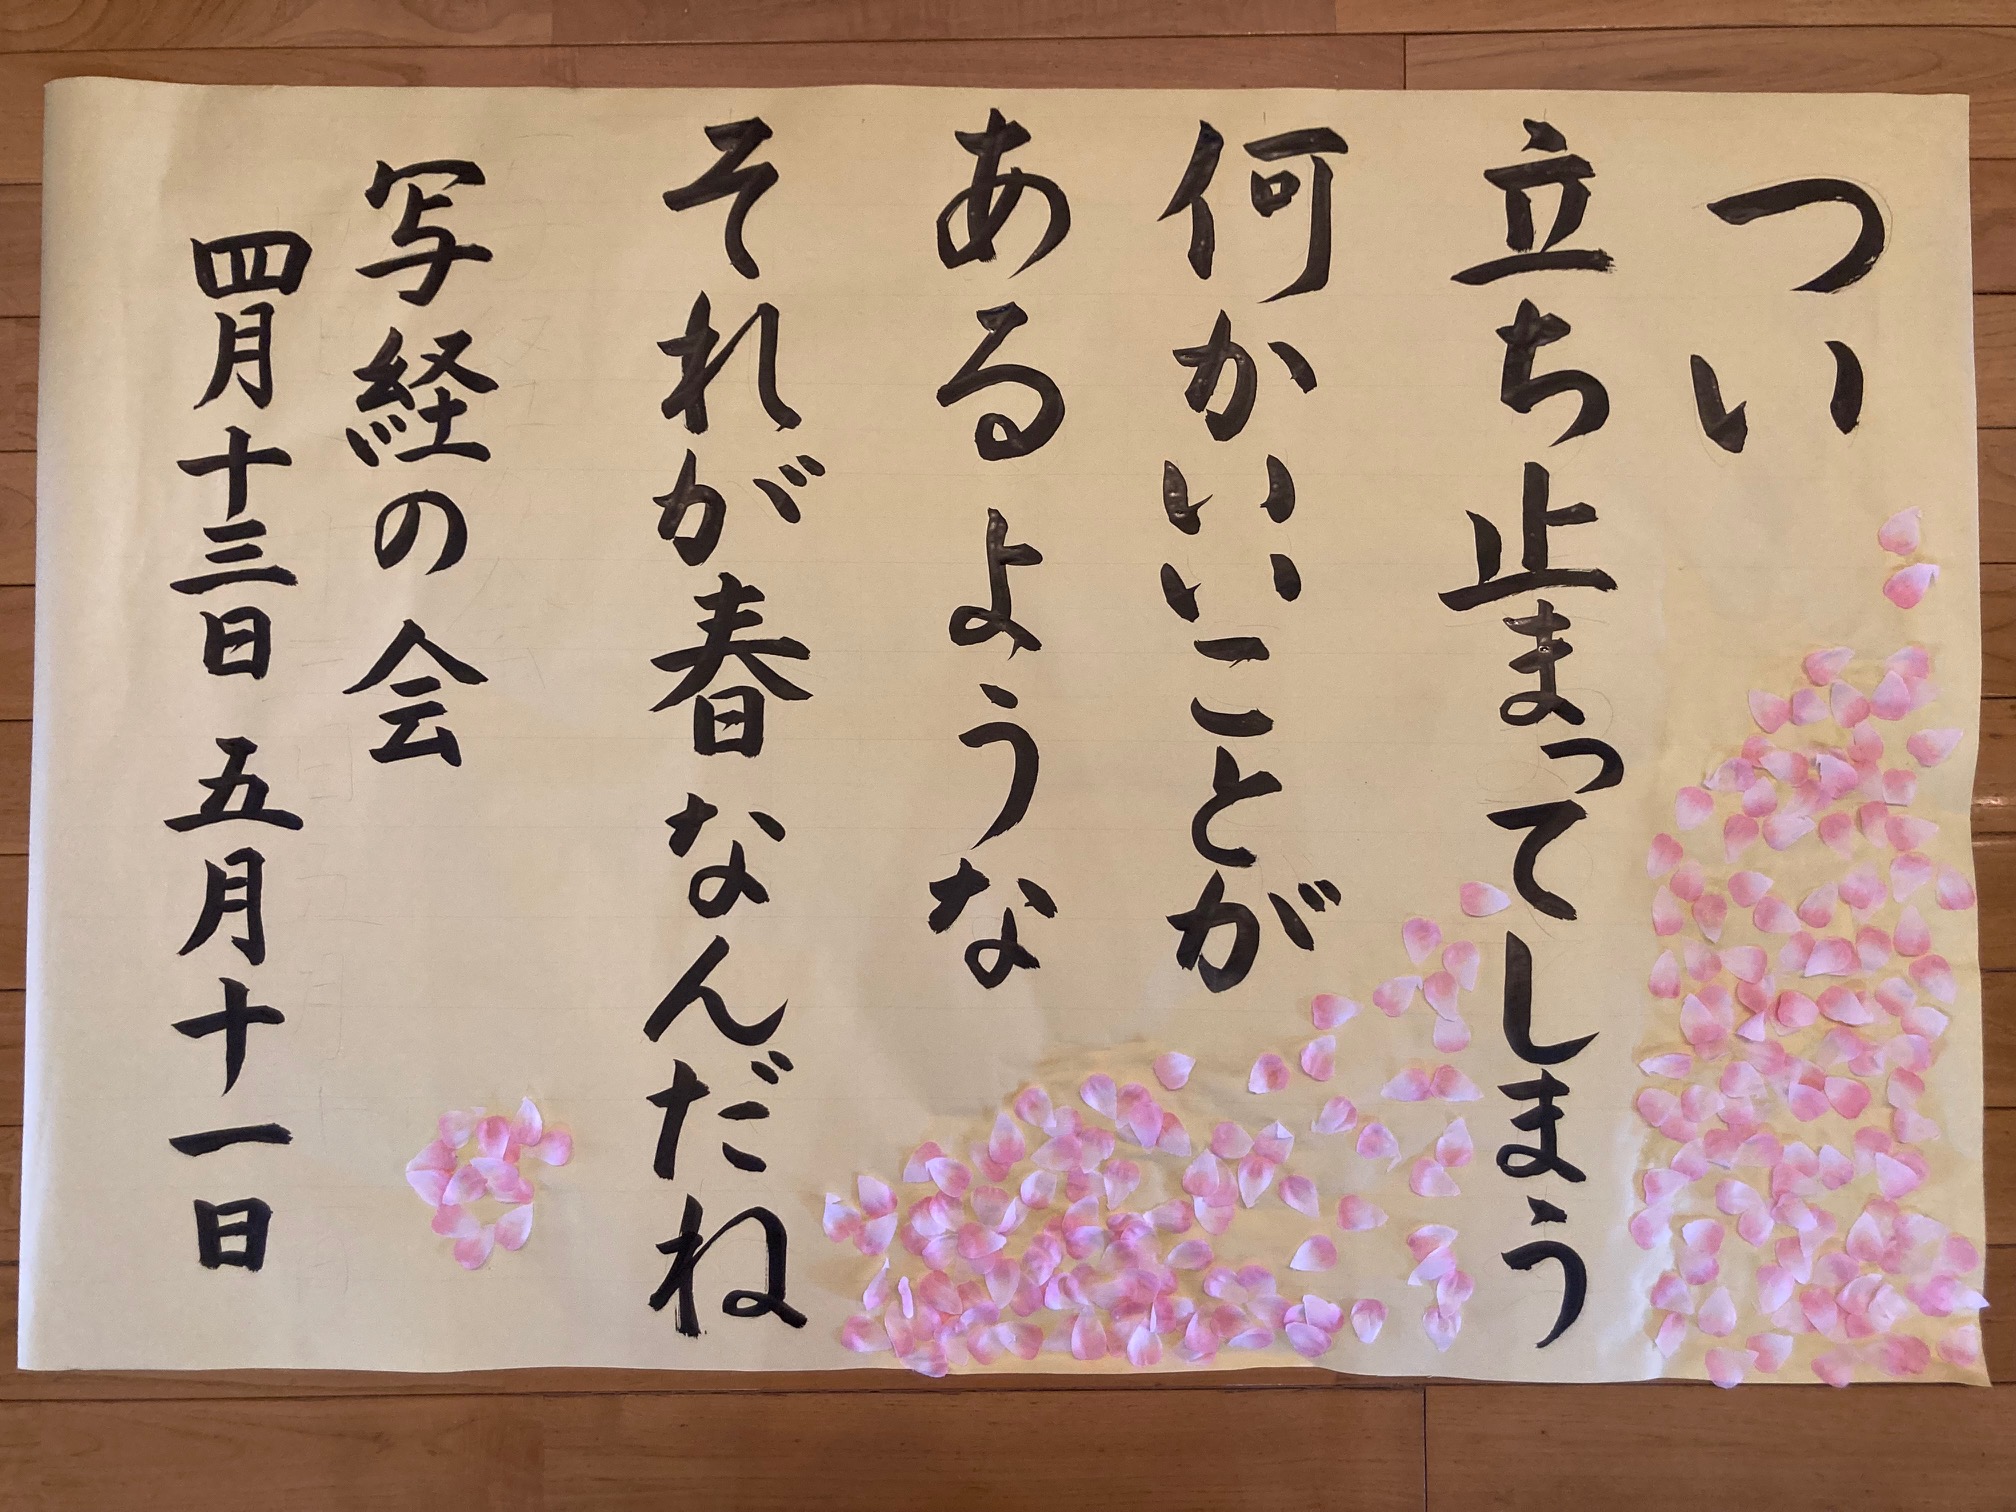 つい
立ち止まってしまう
何かいいことが
あるような
それが春なんだね
写経の会
四月十三日 五月十一日